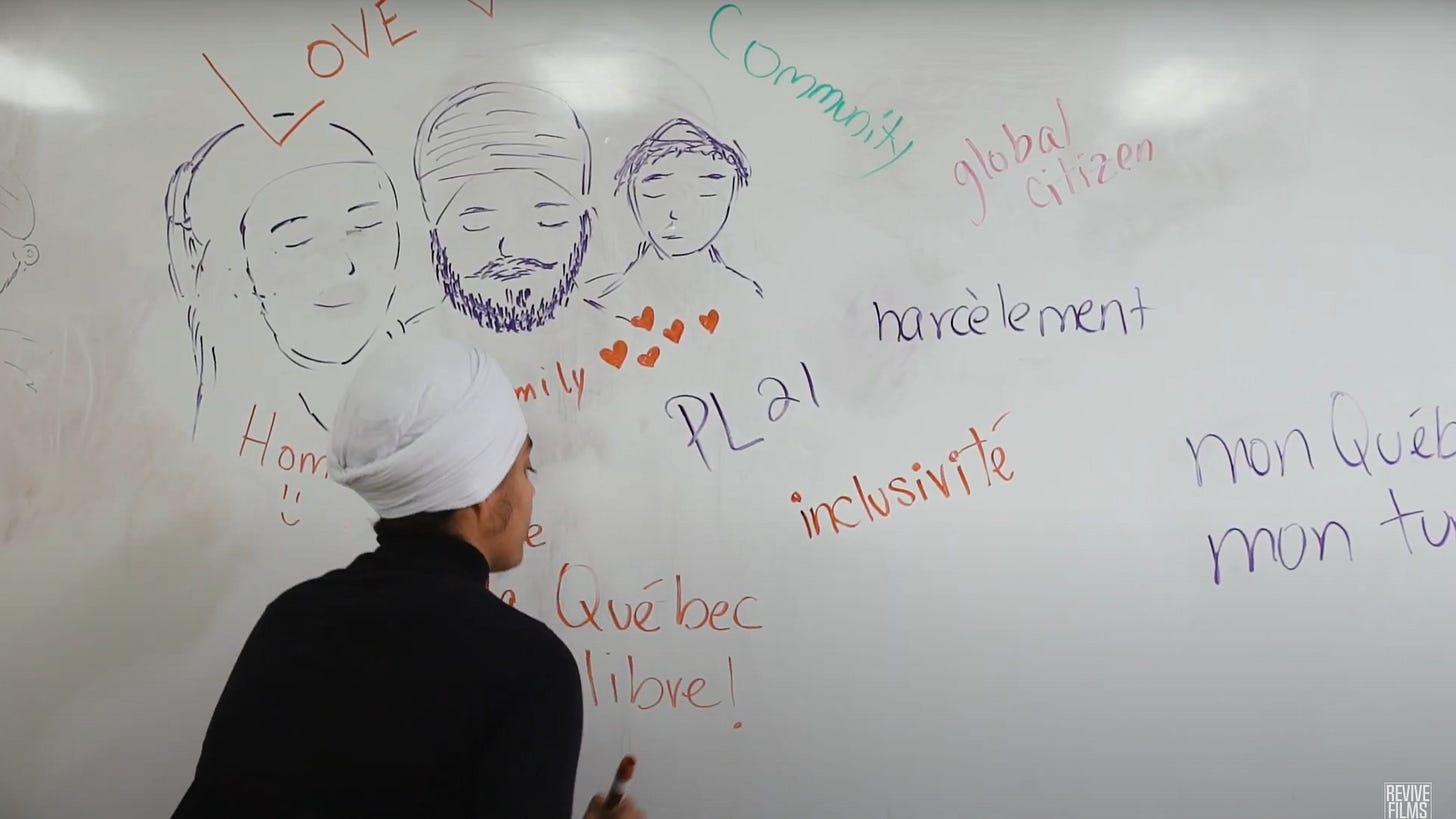 LOVE
Community
global
citizen
harcèlement
mily
PL 21
Hom
inclusivité
mon Québ
mon tu
e
Québec
libre!
REVIVE
FILMS